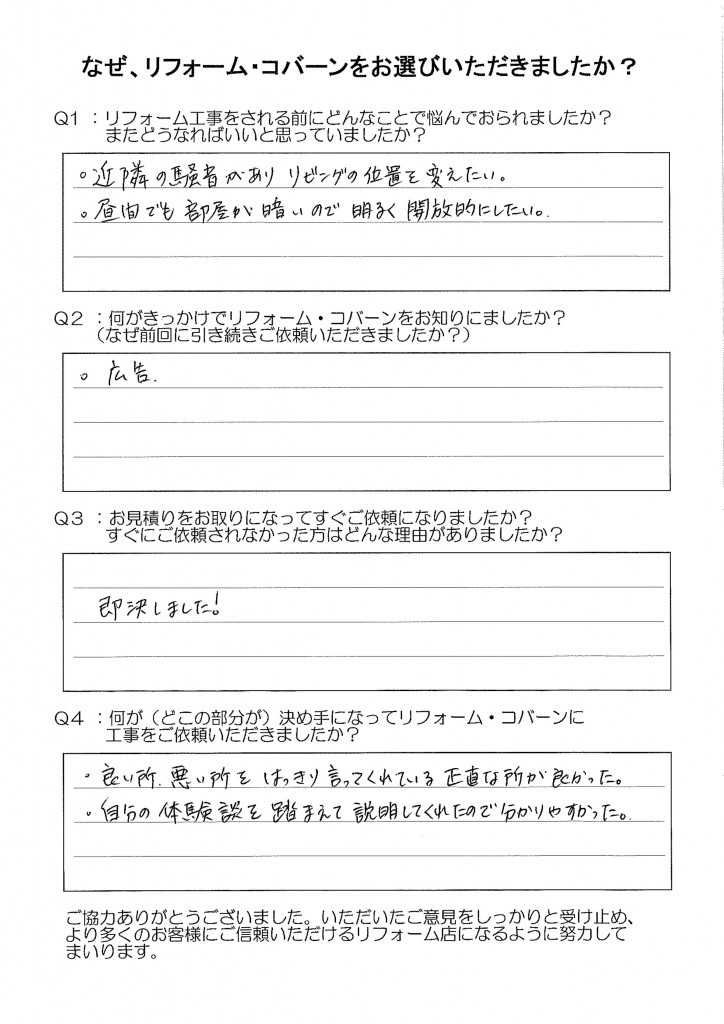 なぜ、リフォーム・コバーンをお選びいただきましたか？
Q1 ：リフォーム工事をされる前にどんなことで悩んでおられましたか？
またどうなればいいと思っていましたか？
。近隣の騒音があり リビングの位置を変えたい。
。昼間でも部屋が暗いので 明るく開放的にしたい。
Q2 ：何がきっかけでリフォーム・コバーンをお知りにましたか？
（なぜ前回に引き続きご依頼いただきましたか？）
。広告.
Q3 ：お見積りをお取りになってすぐご依頼になりましたか？
すぐにご依頼されなかった方はどんな理由がありましたか？
即決しました!
Q4 ：何が（どこの部分が）決め手になってリフォーム・コバーンに
工事をご依頼いただきましたか？
・良い所.悪い所を はっきり言ってくれている 正直な所が良かった。
・自分の体験談を踏まえて 説明してくれたので分かりやすかった。
ご協力ありがとうございました。いただいたご意見をしっかりと受け止め、
より多くのお客様にご信頼いただけるリフォーム店になるように努力して
まいります。